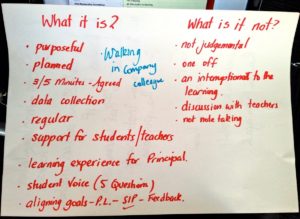 What it is?
• purposeful
• planned
• 3/5 Minutes - Agreed
• data collection
• regular
• support for students/teachers
• learning experience for Principal.
• Student Voice (5 Questions)
• aligning goals - P.L. - SIP - Feedback.
• Walking
in company
colleague
What is it not?
• not judgemental
• one off
• an interruption to the
learning.
• discussion with teachers
• not note taking